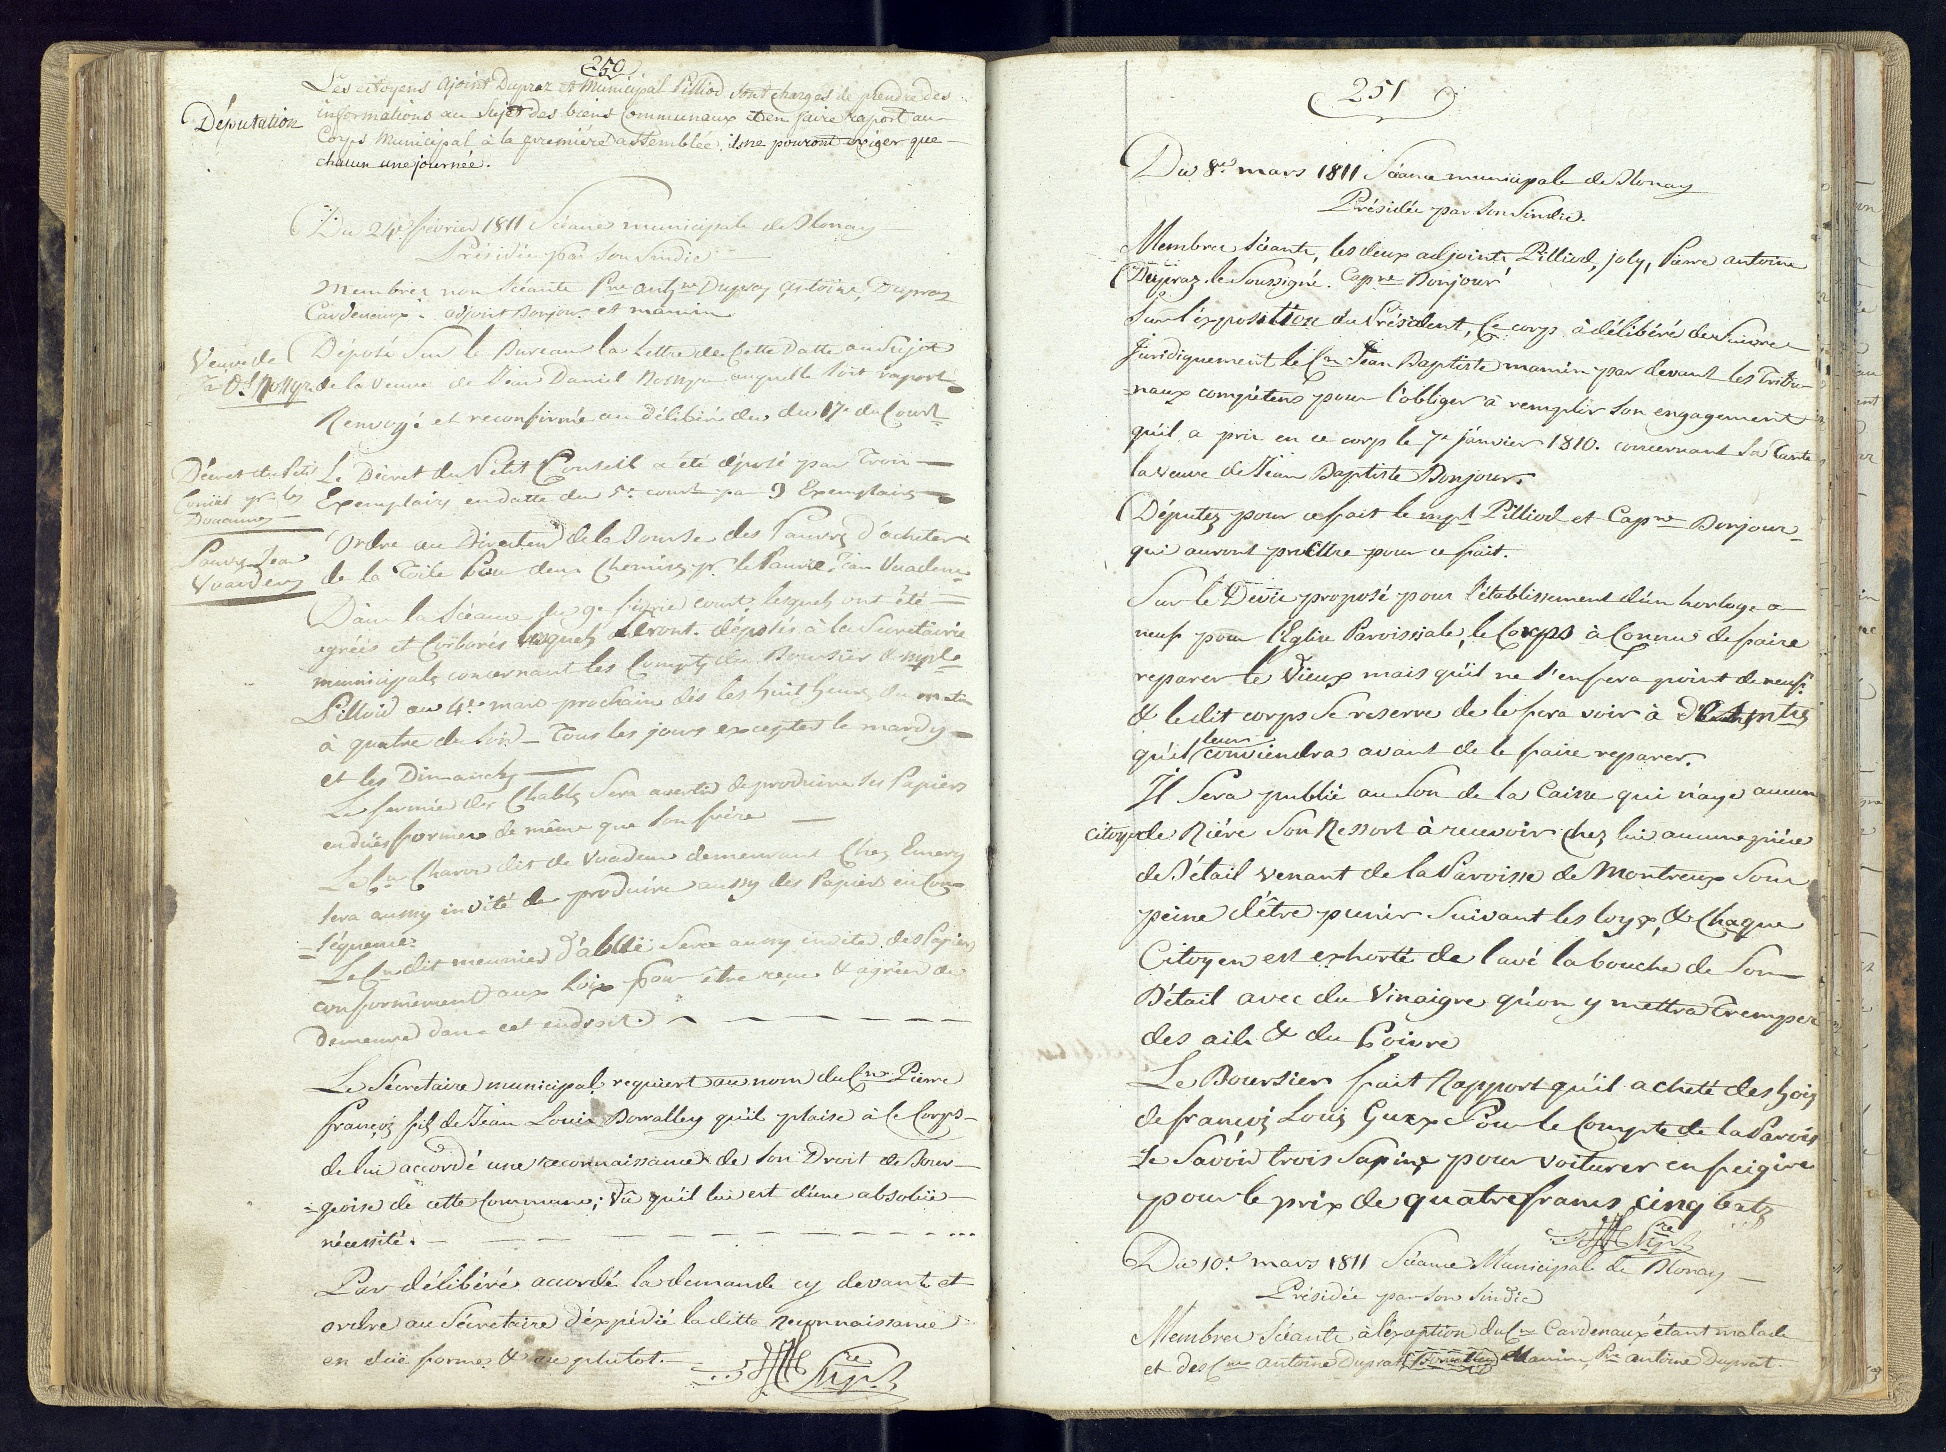 250
Les citoyens ajoint Dupraz et Municipal Pilliod sont chargés de prendre des
Députation
informations au sujet des biens Communaux et en faire raport au
Corps Municipal à la première assemblée, ils ne pouront exiger que
chacun une journée.
Du 24e février 1811 Séance municipale de Blonay
Présidée par son Sindic
Membres non Séants Pre antne Dupraz antoine Dupraz
Cardenaux adjoint Bonjour et mamin
Veuve de
Jn Dl
Déposé Sur le Bureau la Lettre de Cette Datte au Sujet
de la veuve de Jean Daniel auquelle soit raporté
Renvoyé et reconfirmé au délibéré du 17e du Court
Décret du Petit
Conseil pr les
Douannes
Le Décret du Petit Conseil a été déposé par Trois
Exemplaires en datte du 5e court par 9 Exemplaires
Pauvre Jean
Vuadens
Ordre au Directeur de la Bourse des Pauvres d'acheter
de la Toile Pour deux Chemises pr le Pauvre Jean Vuadens
Dans la Séance du 9e février court lesquels ont été
agréés et lesquels Seront déposés à la Secrétairie
municipale concernant les Comptes du Boursier & mple
Pilliod au 4e mars prochain dès les huit heures du matin
à quatre du Soir Tous les jours exceptés le mardy
et les Dimanches
Le fermier des Chables Sera avertis de produire ses Papiers
en dües formes de même que son frère
Le Cn Charn dit de Vuadens demeurant Chez Emery
Sera aussy invité de produire aussy des Papiers en Con=
=séquence
Le Cn dit meunier d'ablli Sera aussy invité des Papiers
conformément aux Loix pour être reçu & agréer de
Demeure dans cet endroit.
Le Sécretaire municipal requiert au nom du Cn Pierre
françois fils de Jean Louis Borralley qu'il plaise à Ce Corps
de lui accordé une reconnaissance de son Droit de Bour-
=geoise de cette Commune; Vû qu'il lui est d'une absolüe
nécessité.
Par délibéré accordé la demande cy devant et
ordre au Sécretaire d'expédié la ditte Reconnaissance
en düe forme & au plutot.
251
Du 8e mars 1811 Séance municipale de Blonay
Présidée par son Sindic.
Membres Séants, les deux adjoints Pilliod, joly, Pierre antoine
Dupraz le Soussigné. Capne Bonjour
Sur l'éxposition du Président, Ce corps à délibéré de Suivre
Juridiquement le Cn Jean Baptiste mamin par devant les Tribu-
-naux compétens pour l'obliger à remplir son engagement
qu'il a pris en ce corp le 7e janvier 1810. concernant Sa Tante
la veuve de Jean Baptiste Bonjour.
Députez pour ce fait le mpl Pilliod et Capne Bonjour
qui auront pour ce fait.
Sur le Devis proposé pour l'établissement d'un horloge
neuf pour l'Eglise Paroissiale, le Corps à Connu de faire
reparer le Vieux mais qu'il ne s'en fera point de neuf
& le dit corps Se reserve de le fera voir à
qu'il leur conviendra avant de le faire reparer.
Il Sera publié au Son de la Caisse qui n'aye aucun
citoyen de Rière Son Ressort à recevoir chez lui aucune pièce
de Bétail venant de la Paroisse de Montreux Sous
peine d'être punir Suivant les loyx, & Chaque
Citoyen est exhorté de lavé la bouche de Son
Bétail avec du Vinaigre qu'on y mettra Tremper
des ails & du Poivre
Le Boursier fait Rapport qu'il acheté des bois
de françois Louis Guex Pour le Compte de la Parois
se Savoir trois Sapins pour voiturer en feigire
pour le prix de quatre francs cinq batz
Du 10e mars 1811 Séance Municipale de Blonay
Présidée par son Sindic
Membres Séants à l'exception du Cn Cardenaux étant malade
et des Cns antoine Duprat Mamin, Pre antoine Duprat.